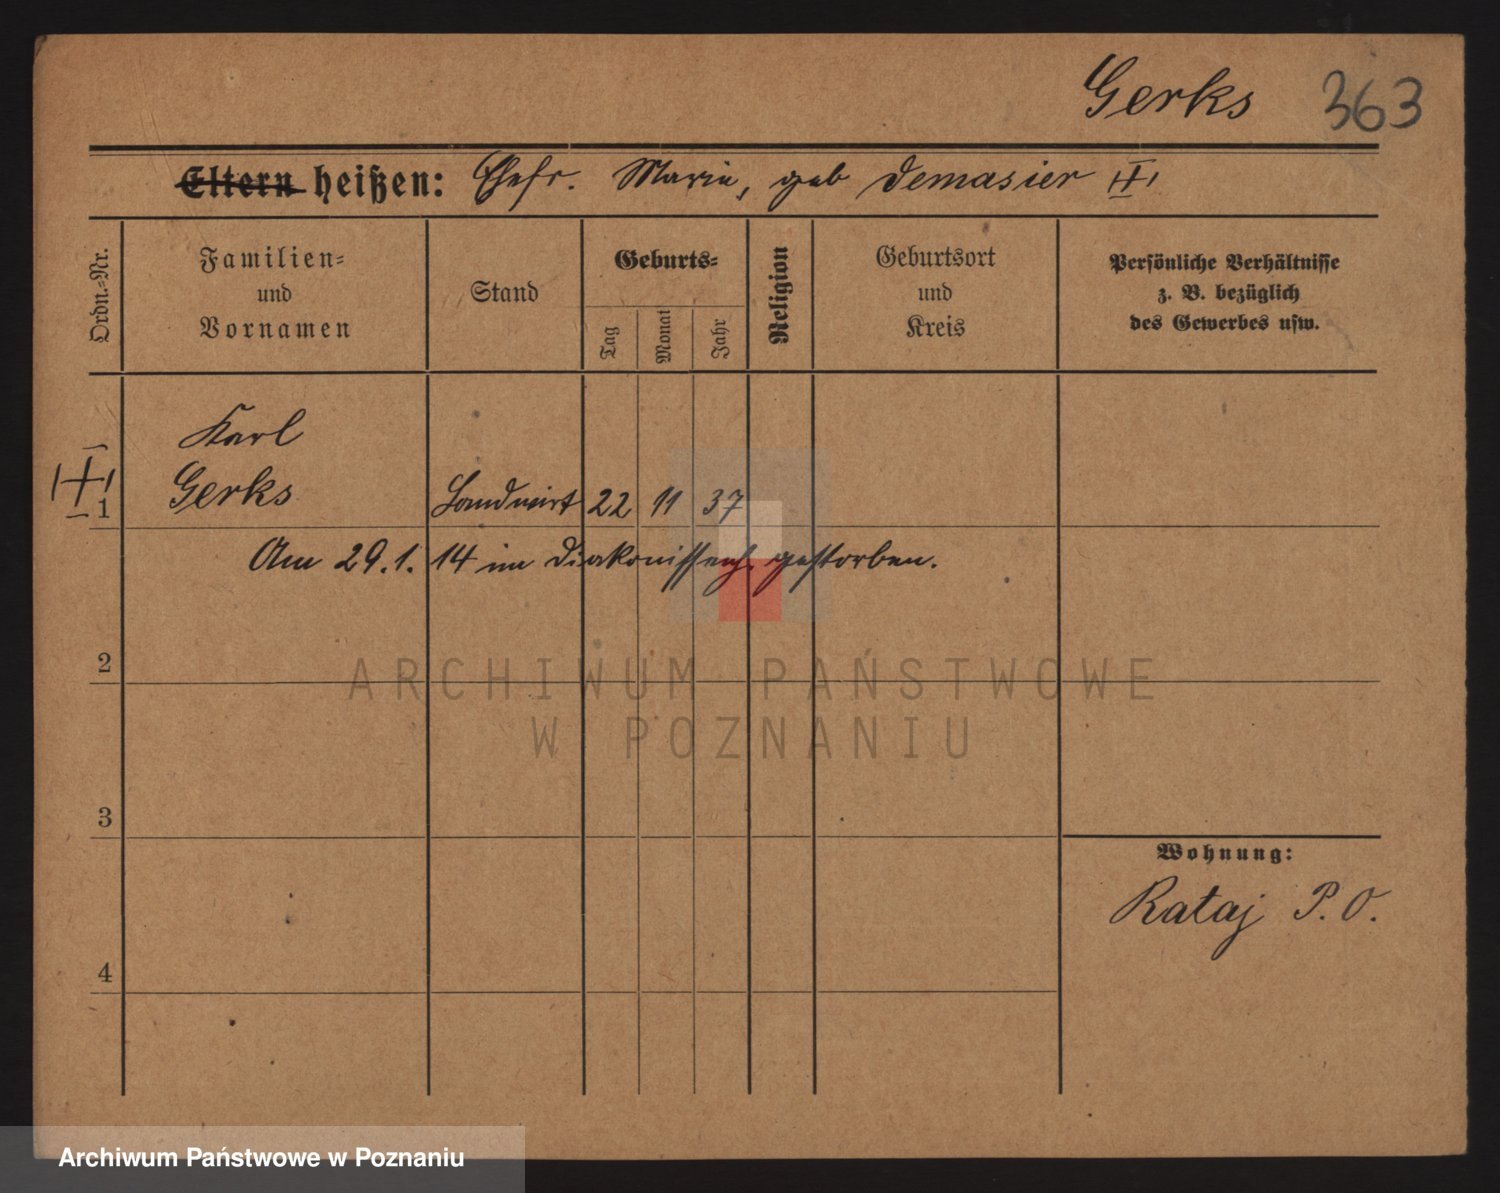 Gerks 363
Eltern heißen: Ehefr. Marie, geb Demasier
Ordn.-Nr.
Familien-
und
Vornamen
Stand
Geburts-
Tag
Monat
Jahr
Religion
Geburtsort
und
Kreis
Persönliche Verhältnisse
z. B. bezüglich
des Gewerbes usw.
Karl
1 Gerks Landwirt 22 11 37
Am 29.1.14 im Diakonissenh. gestorben.
2
3
4
Wohnung:
Rataj P. O.
ARCHIWUM PAŃSTWOWE
W POZNANIU
Archiwum Państwowe w Poznaniu